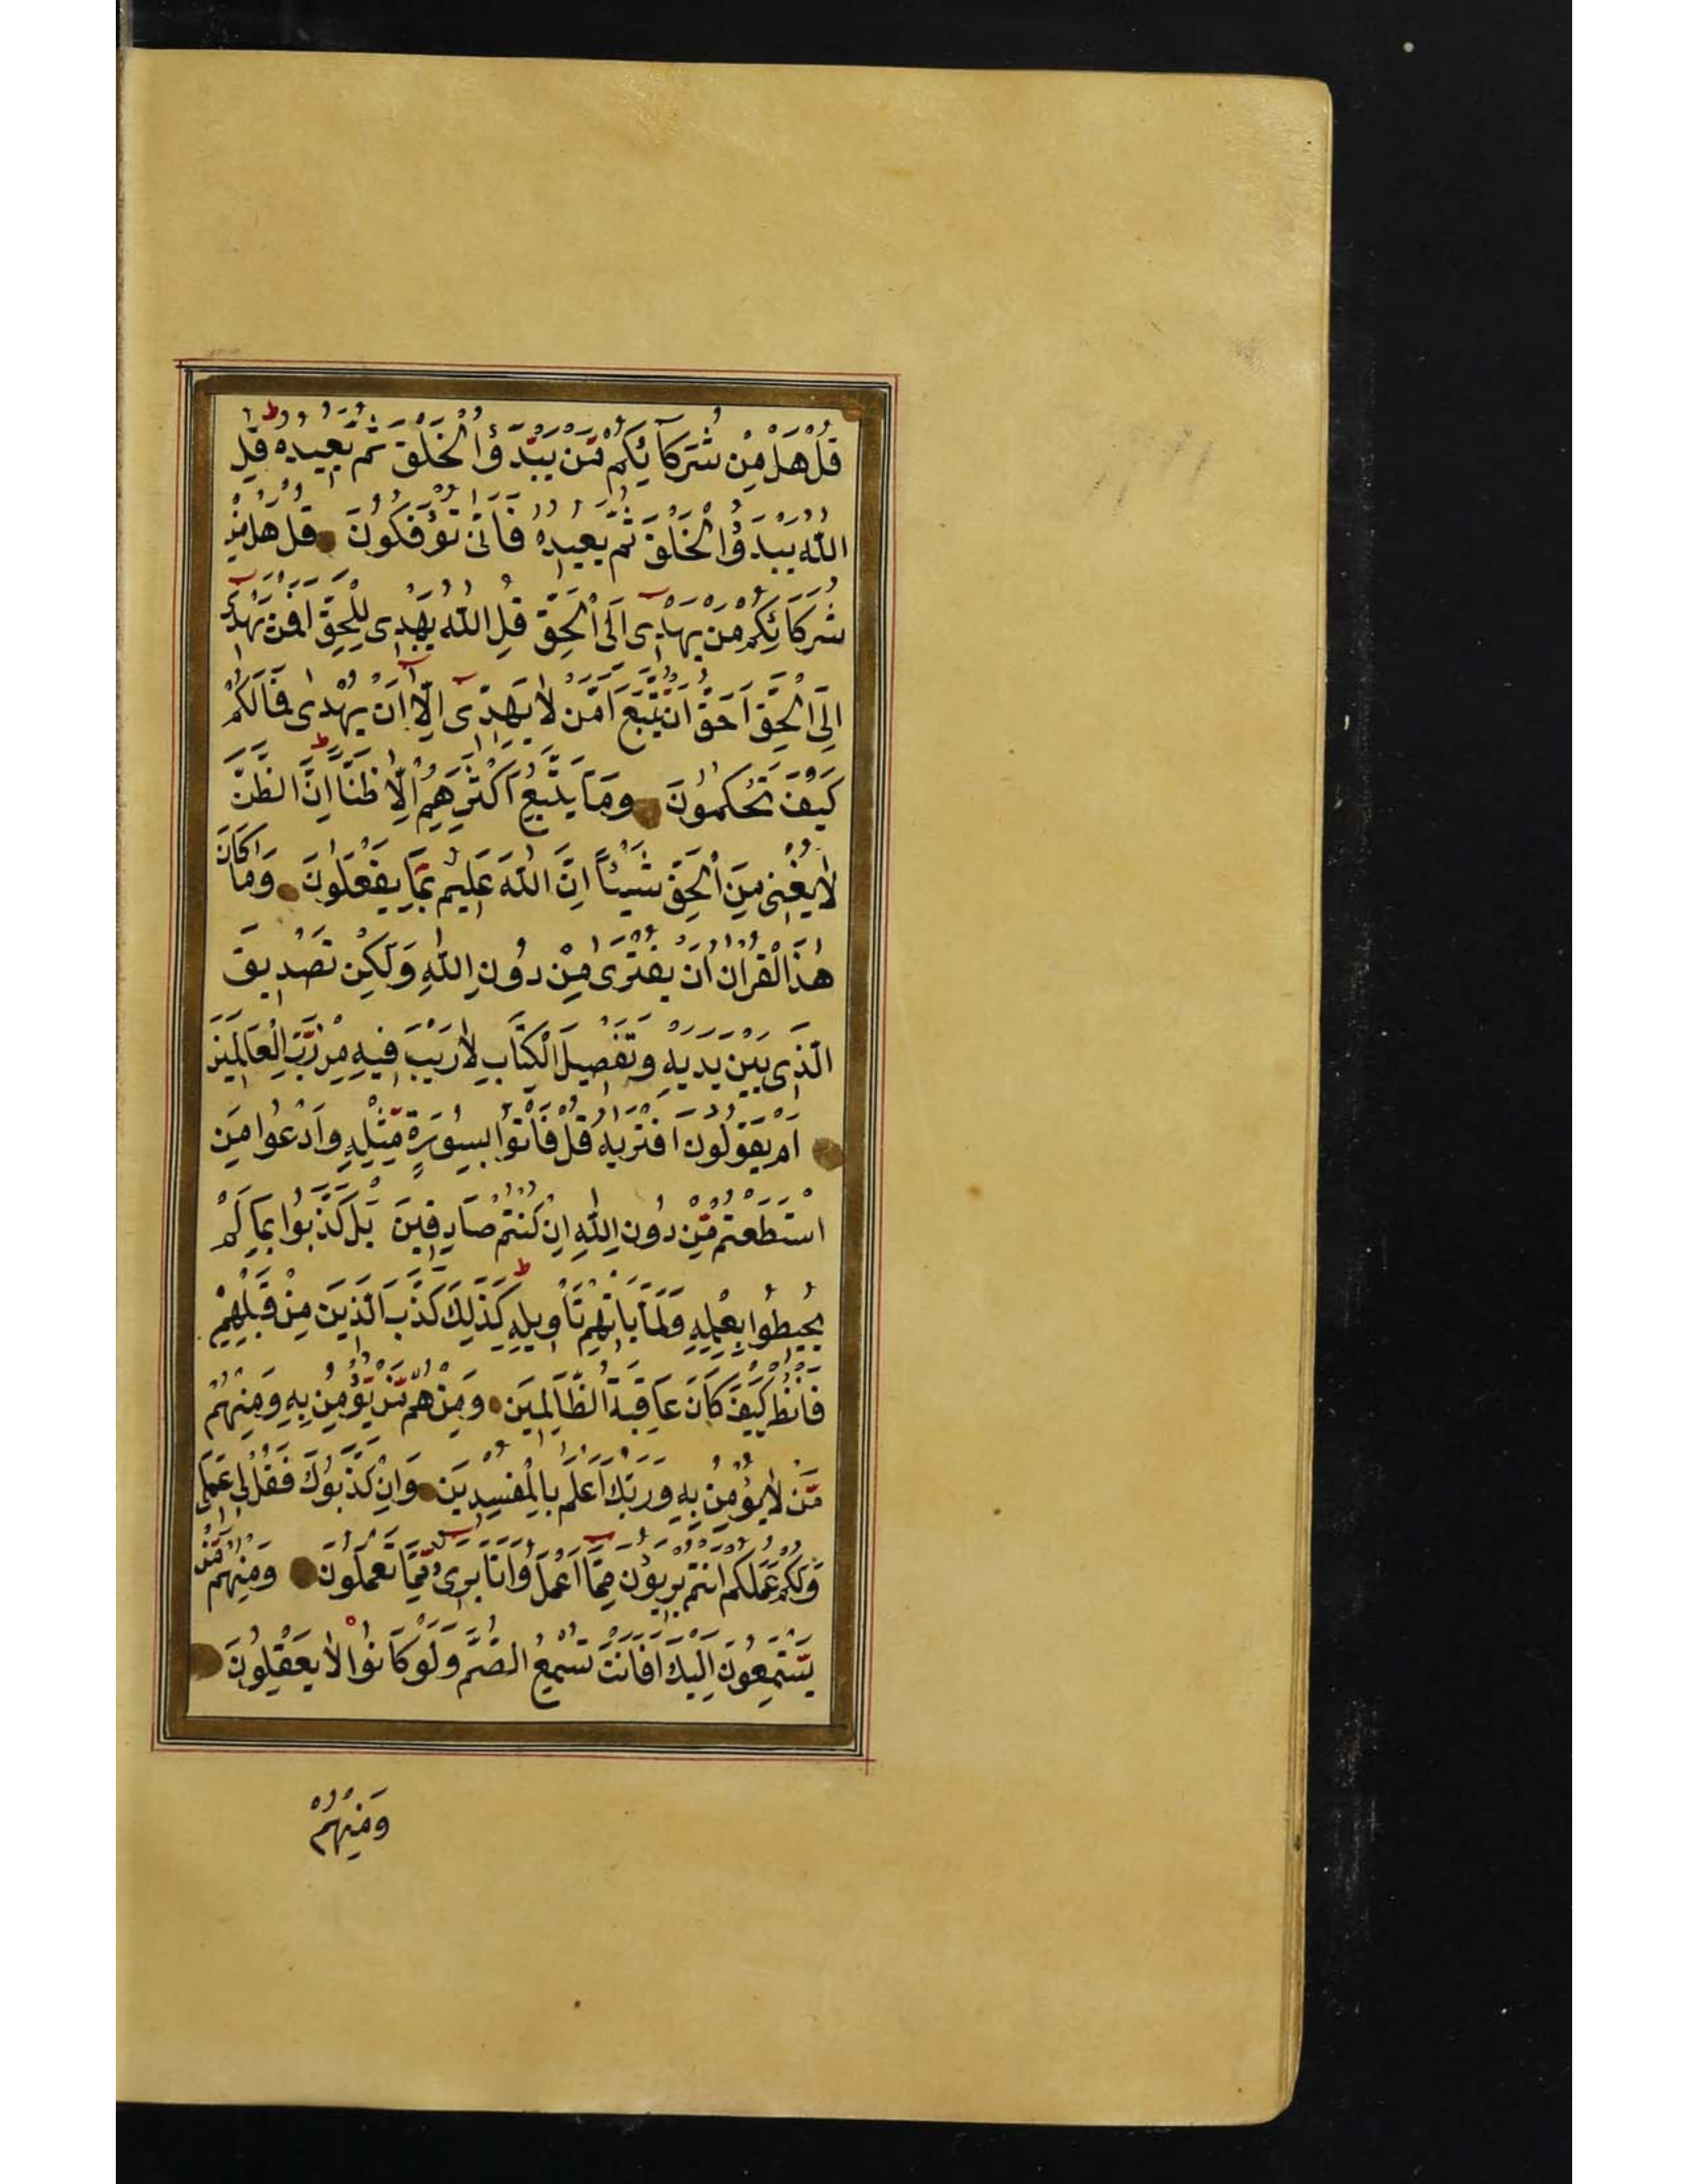 قُلْ هَلْ مِنْ شُرَكَآئِكُمْ مَّنْ يَّبْدَؤُا الْخَلْقَ ثُمَّ يُعِيدُهُ قُلِ
اللّٰهُ يَبْدَؤُا الْخَلْقَ ثُمَّ يُعِيدُهُ فَاَنّٰى تُؤْفَكُونَ قُلْ هَلْ مِنْ
شُرَكَائِكُمْ مَنْ يَهْدِى اِلَى الْحَقِّ قُلِ اللّٰهُ يَهْدِى لِلْحَقِّ اَفَمَنْ يَهْدِى
اِلَى الْحَقِّ اَحَقُّ اَنْ يُتَّبَعَ اَمَّنْ لَا يَهِدِّى اِلَّا اَنْ يُهْدٰى فَمَا لَكُمْ
كَيْفَ تَحْكُمُونَ وَمَا يَتَّبِعُ اَكْثَرُهُمْ اِلَّا ظَنًّا اِنَّ الظَّنَّ
لَا يُغْنِى مِنَ الْحَقِّ شَيْئًا اِنَّ اللّٰهَ عَلِيمٌ بِمَا يَفْعَلُونَ وَمَا كَانَ
هٰذَا الْقُرْاٰنُ اَنْ يُفْتَرٰى مِنْ دُونِ اللّٰهِ وَلٰكِنْ تَصْدِيقَ
الَّذِى بَيْنَ يَدَيْهِ وَتَفْصِيلَ الْكِتَابِ لَا رَيْبَ فِيهِ مِنْ رَّبِّ الْعَالَمِينَ
اَمْ يَقُولُونَ افْتَرٰيهُ قُلْ فَاْتُوا بِسُورَةٍ مِّثْلِهِ وَادْعُوا مَنِ
اسْتَطَعْتُمْ مِّنْ دُونِ اللّٰهِ اِنْ كُنْتُمْ صَادِقِينَ بَلْ كَذَّبُوا بِمَا لَمْ
يُحِيطُوا بِعِلْمِهِ وَلَمَّا يَاْتِهِمْ تَاْوِيلُهُ كَذٰلِكَ كَذَّبَ الَّذِينَ مِنْ قَبْلِهِمْ
فَانْظُرْ كَيْفَ كَانَ عَاقِبَةُ الظَّالِمِينَ وَمِنْهُمْ مَّنْ يُّؤْمِنُ بِهِ وَمِنْهُمْ
مَّنْ لَا يُؤْمِنُ بِهِ وَرَبُّكَ اَعْلَمُ بِالْمُفْسِدِينَ وَاِنْ كَذَّبُوكَ فَقُلْ لِى عَمَلِى
وَلَكُمْ عَمَلُكُمْ اَنْتُمْ بَرِيؤُنَ مِمَّا اَعْمَلُ وَاَنَا بَرِىءٌ مِّمَّا تَعْمَلُونَ وَمِنْهُمْ مَّنْ
يَّسْتَمِعُونَ اِلَيْكَ اَفَاَنْتَ تُسْمِعُ الصُّمَّ وَلَوْ كَانُوا لَا يَعْقِلُونَ
وَمِنْهُمْ